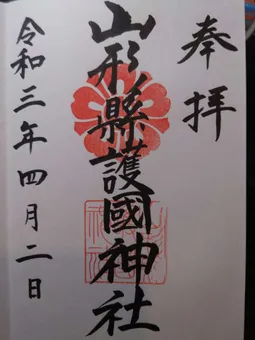 奉拝
山形縣護國神社
令和三年四月二日